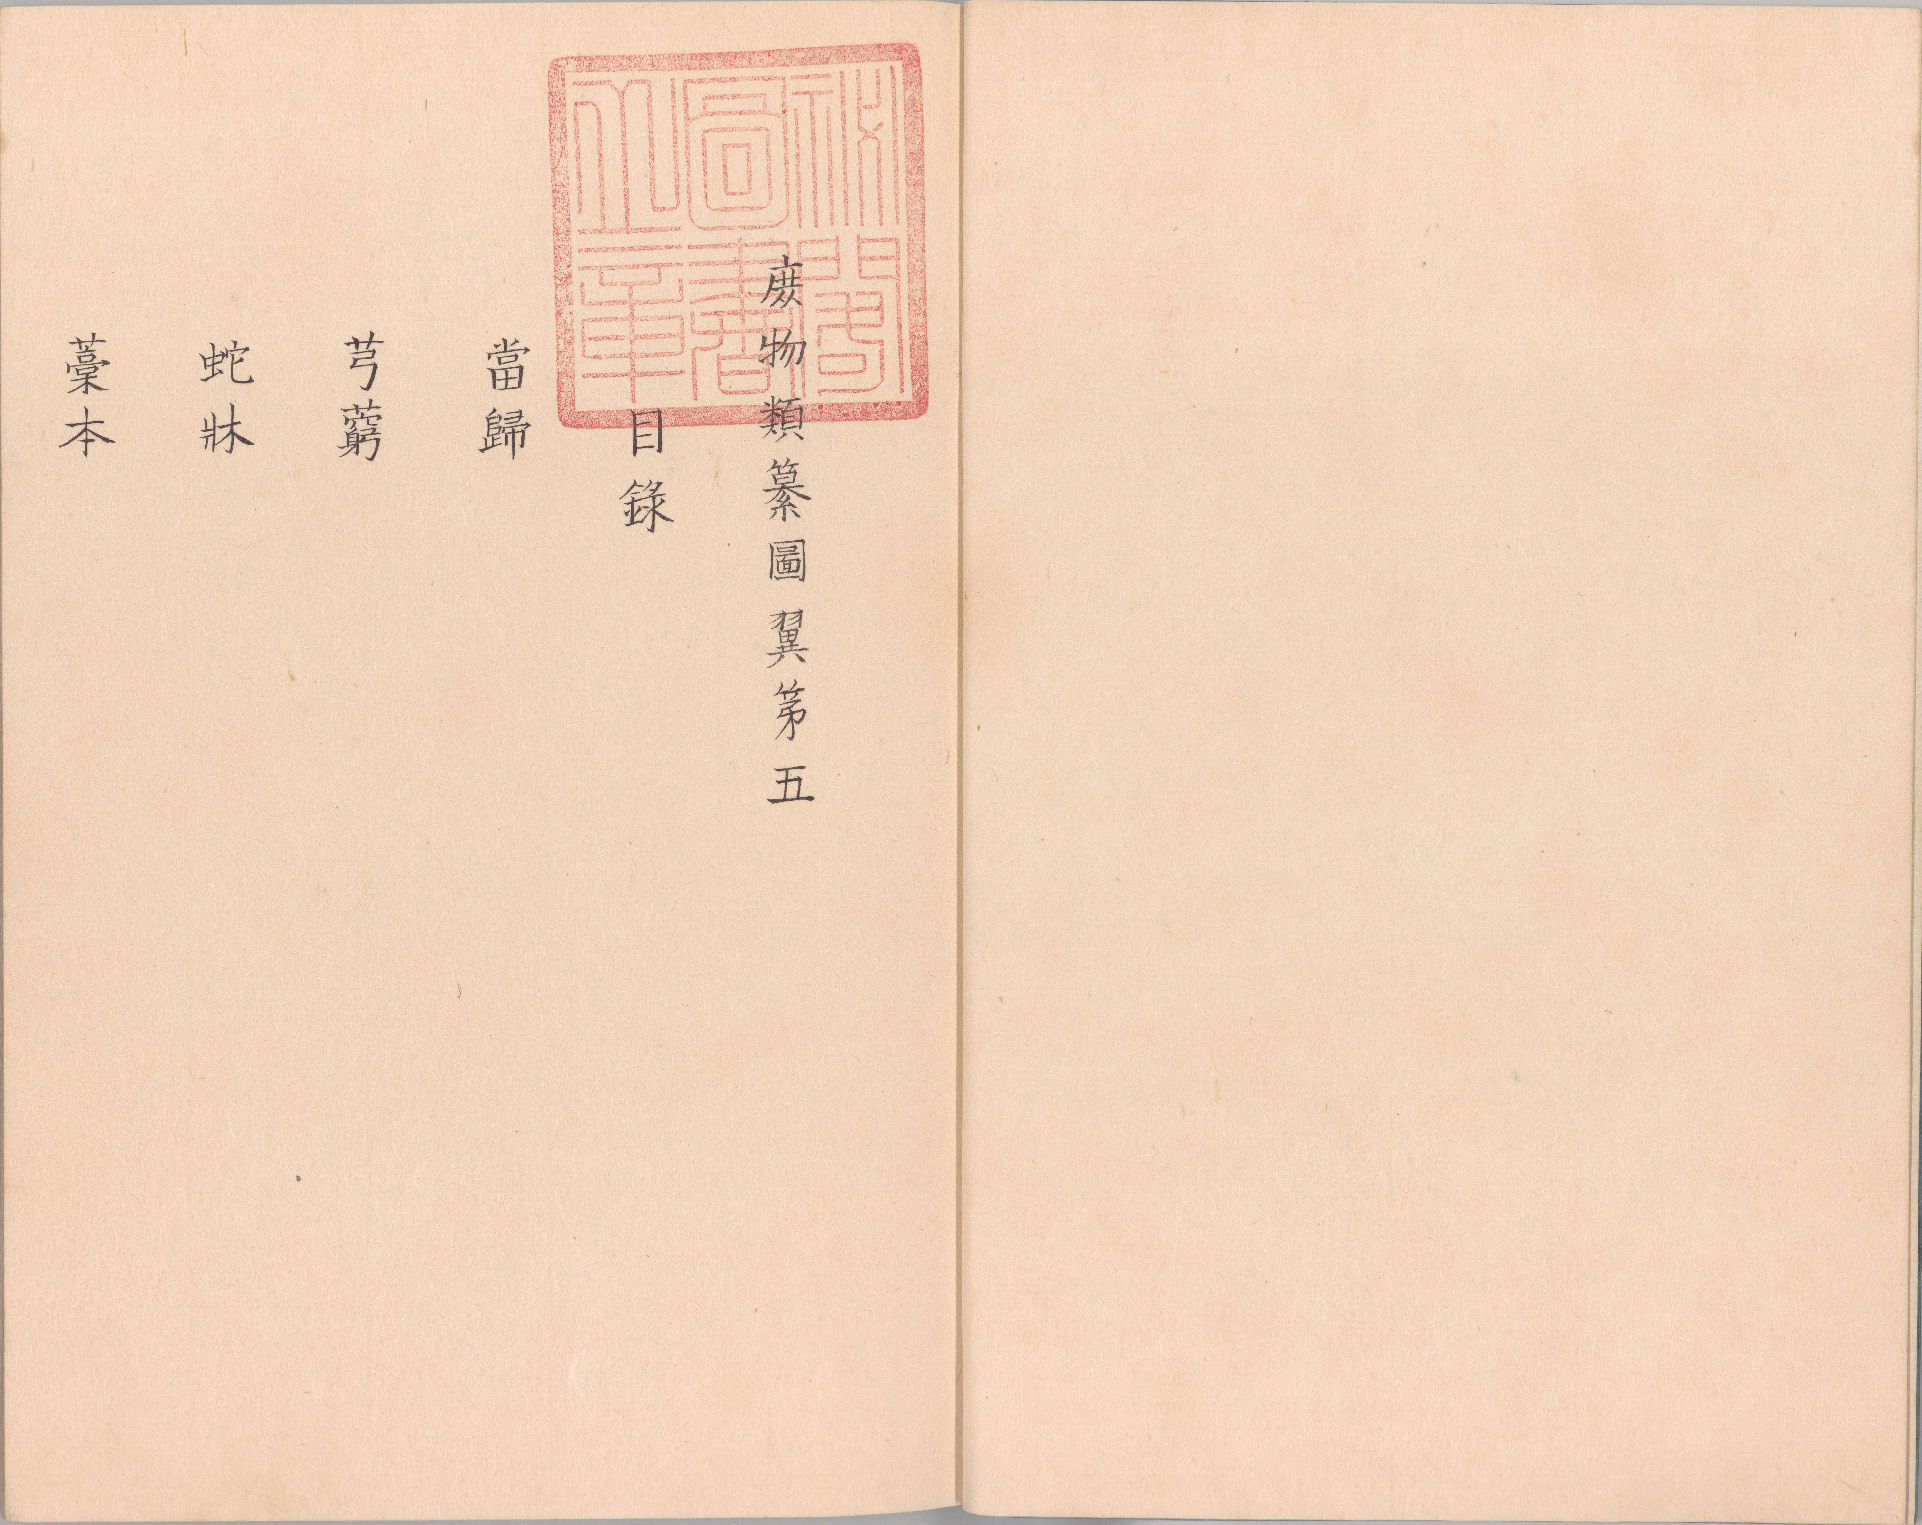 庻物類纂圖翼第五
目錄
當歸
芎藭
蛇牀
藁本
秘閣
圖書
之章